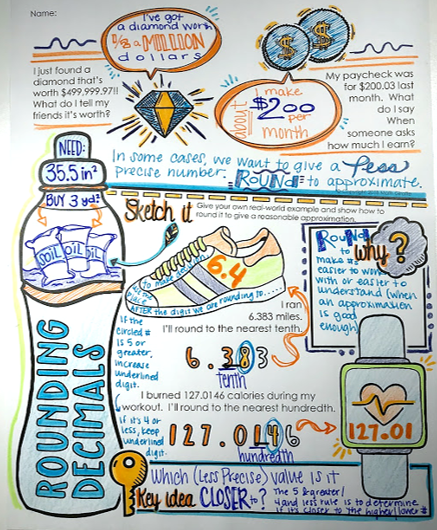 Name:
I've got
a diamond worth
1/2 a MILLION
dollars
I just found a
diamond that's
worth $499,999.97!!
What do I tell my
friends it's worth?
about
I make
$200
per
month
My paycheck was
for $200.03 last
month. What
do I say
When
someone asks
how much I earn?
In some cases, we want to give a less
precise number. ROUND to approximate.
NEED:
35.5 in²
BUY 3 yd²
SOIL SOIL SOIL
ROUNDING
DECIMALS
Sketch it
Give your own real-world example and show how to
round it to give a reasonable approximation.
6.4
AFTER the digit we are rounding to....
I ran
6.383 miles.
I'll round to the nearest tenth.
if the
circled #
is 5 or
greater,
increase
underlined
digit.
6.383
tenth
I burned 127.0146 calories during my
workout. I'll round to the nearest hundredth.
if it's 4 or
less, keep
underlined
digit.
127.0146
hundredth
why?
Round
to
make #s
easier to work
with or easier to
understand (when
an approximation
is good
enough)
127.01
Key idea
Which (Less Precise) value is it
CLOSER to?
The 5 & greater/
4 and less rule is to determine
if it's closer to the higher/lower #